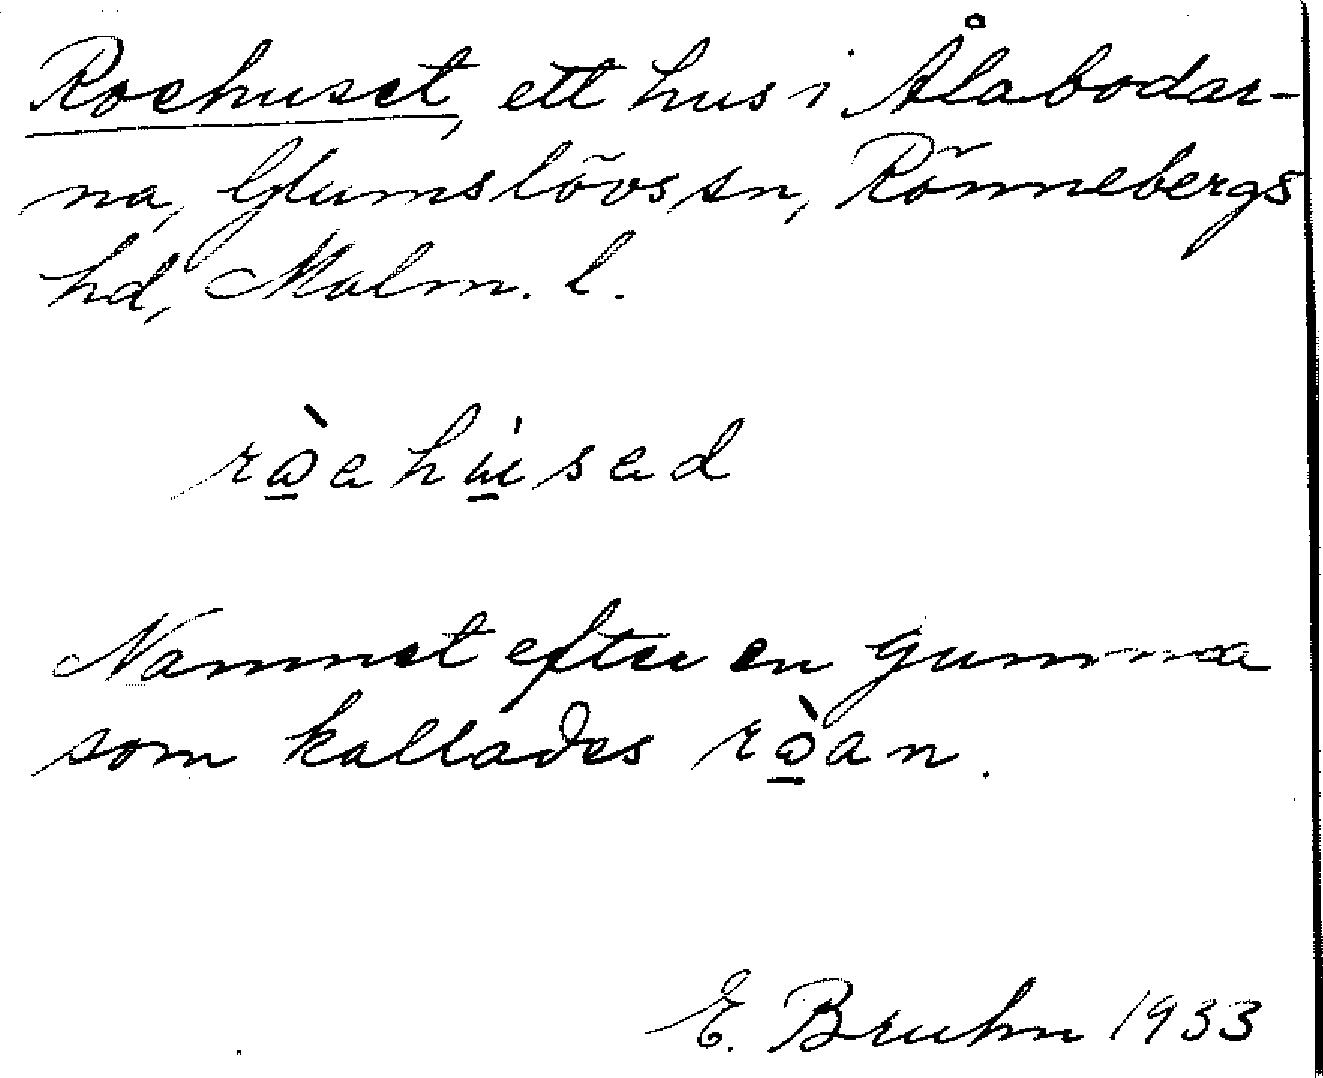 Roehuset, ett hus i Ålabodar-
na, Glumslövs sn, Rönnebergs
hd, Malm. l.
rò̠ahu̠̍sad
Namnet efter en gumma
som kallades rò̠an.
E. Bruhn 1933